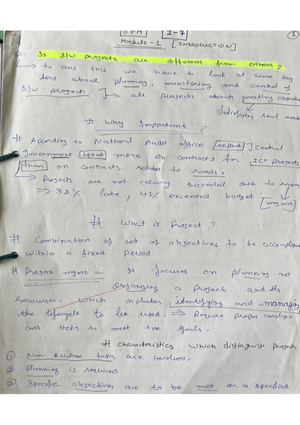 SPM 1-7
Module-1 [INTRODUCTION]
Q:- Is S/W projects are different from others?
↳ to ans this we have to look at some key
ideas about planning, monitoring and control of
S/W projects. ]→ all projects about meeting objectives
# Why Important?
# According to National Audit office report] Central
Government spend more on contracts for ICT projects
than on contracts related to roads.
↳ Projects are not always successful due to
⇒ 82% late, 43% exceeded budget mgmt
# What is Project?
# Combination of set of objectives to be accomplish
within a fixed period.
# Project mgmt = It focuses on planning and
organizing a project and its
resources, which includes identifying and managing
the lifecycle to be used. ⇒ Require proper
and steps to meet the goals.
# Characteristics which distinguish projects
① Non-Routine tasks are involved.
② Planning is required
③ Specific objectives are to be met or a specified